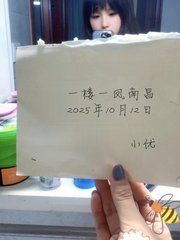 一楼一凤南昌
2025年10月12日
小优